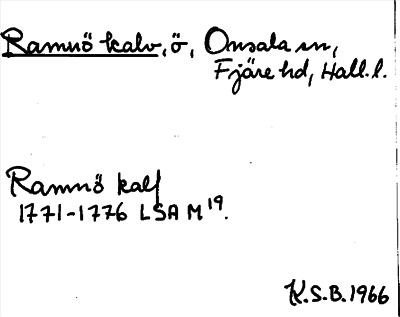 Ramnö kalv, ö, Onsala sn,
Fjäre hd, Hall. l.
Ramnö kalf
1771-1776 LSA M¹⁹.
K.S.B. 1966